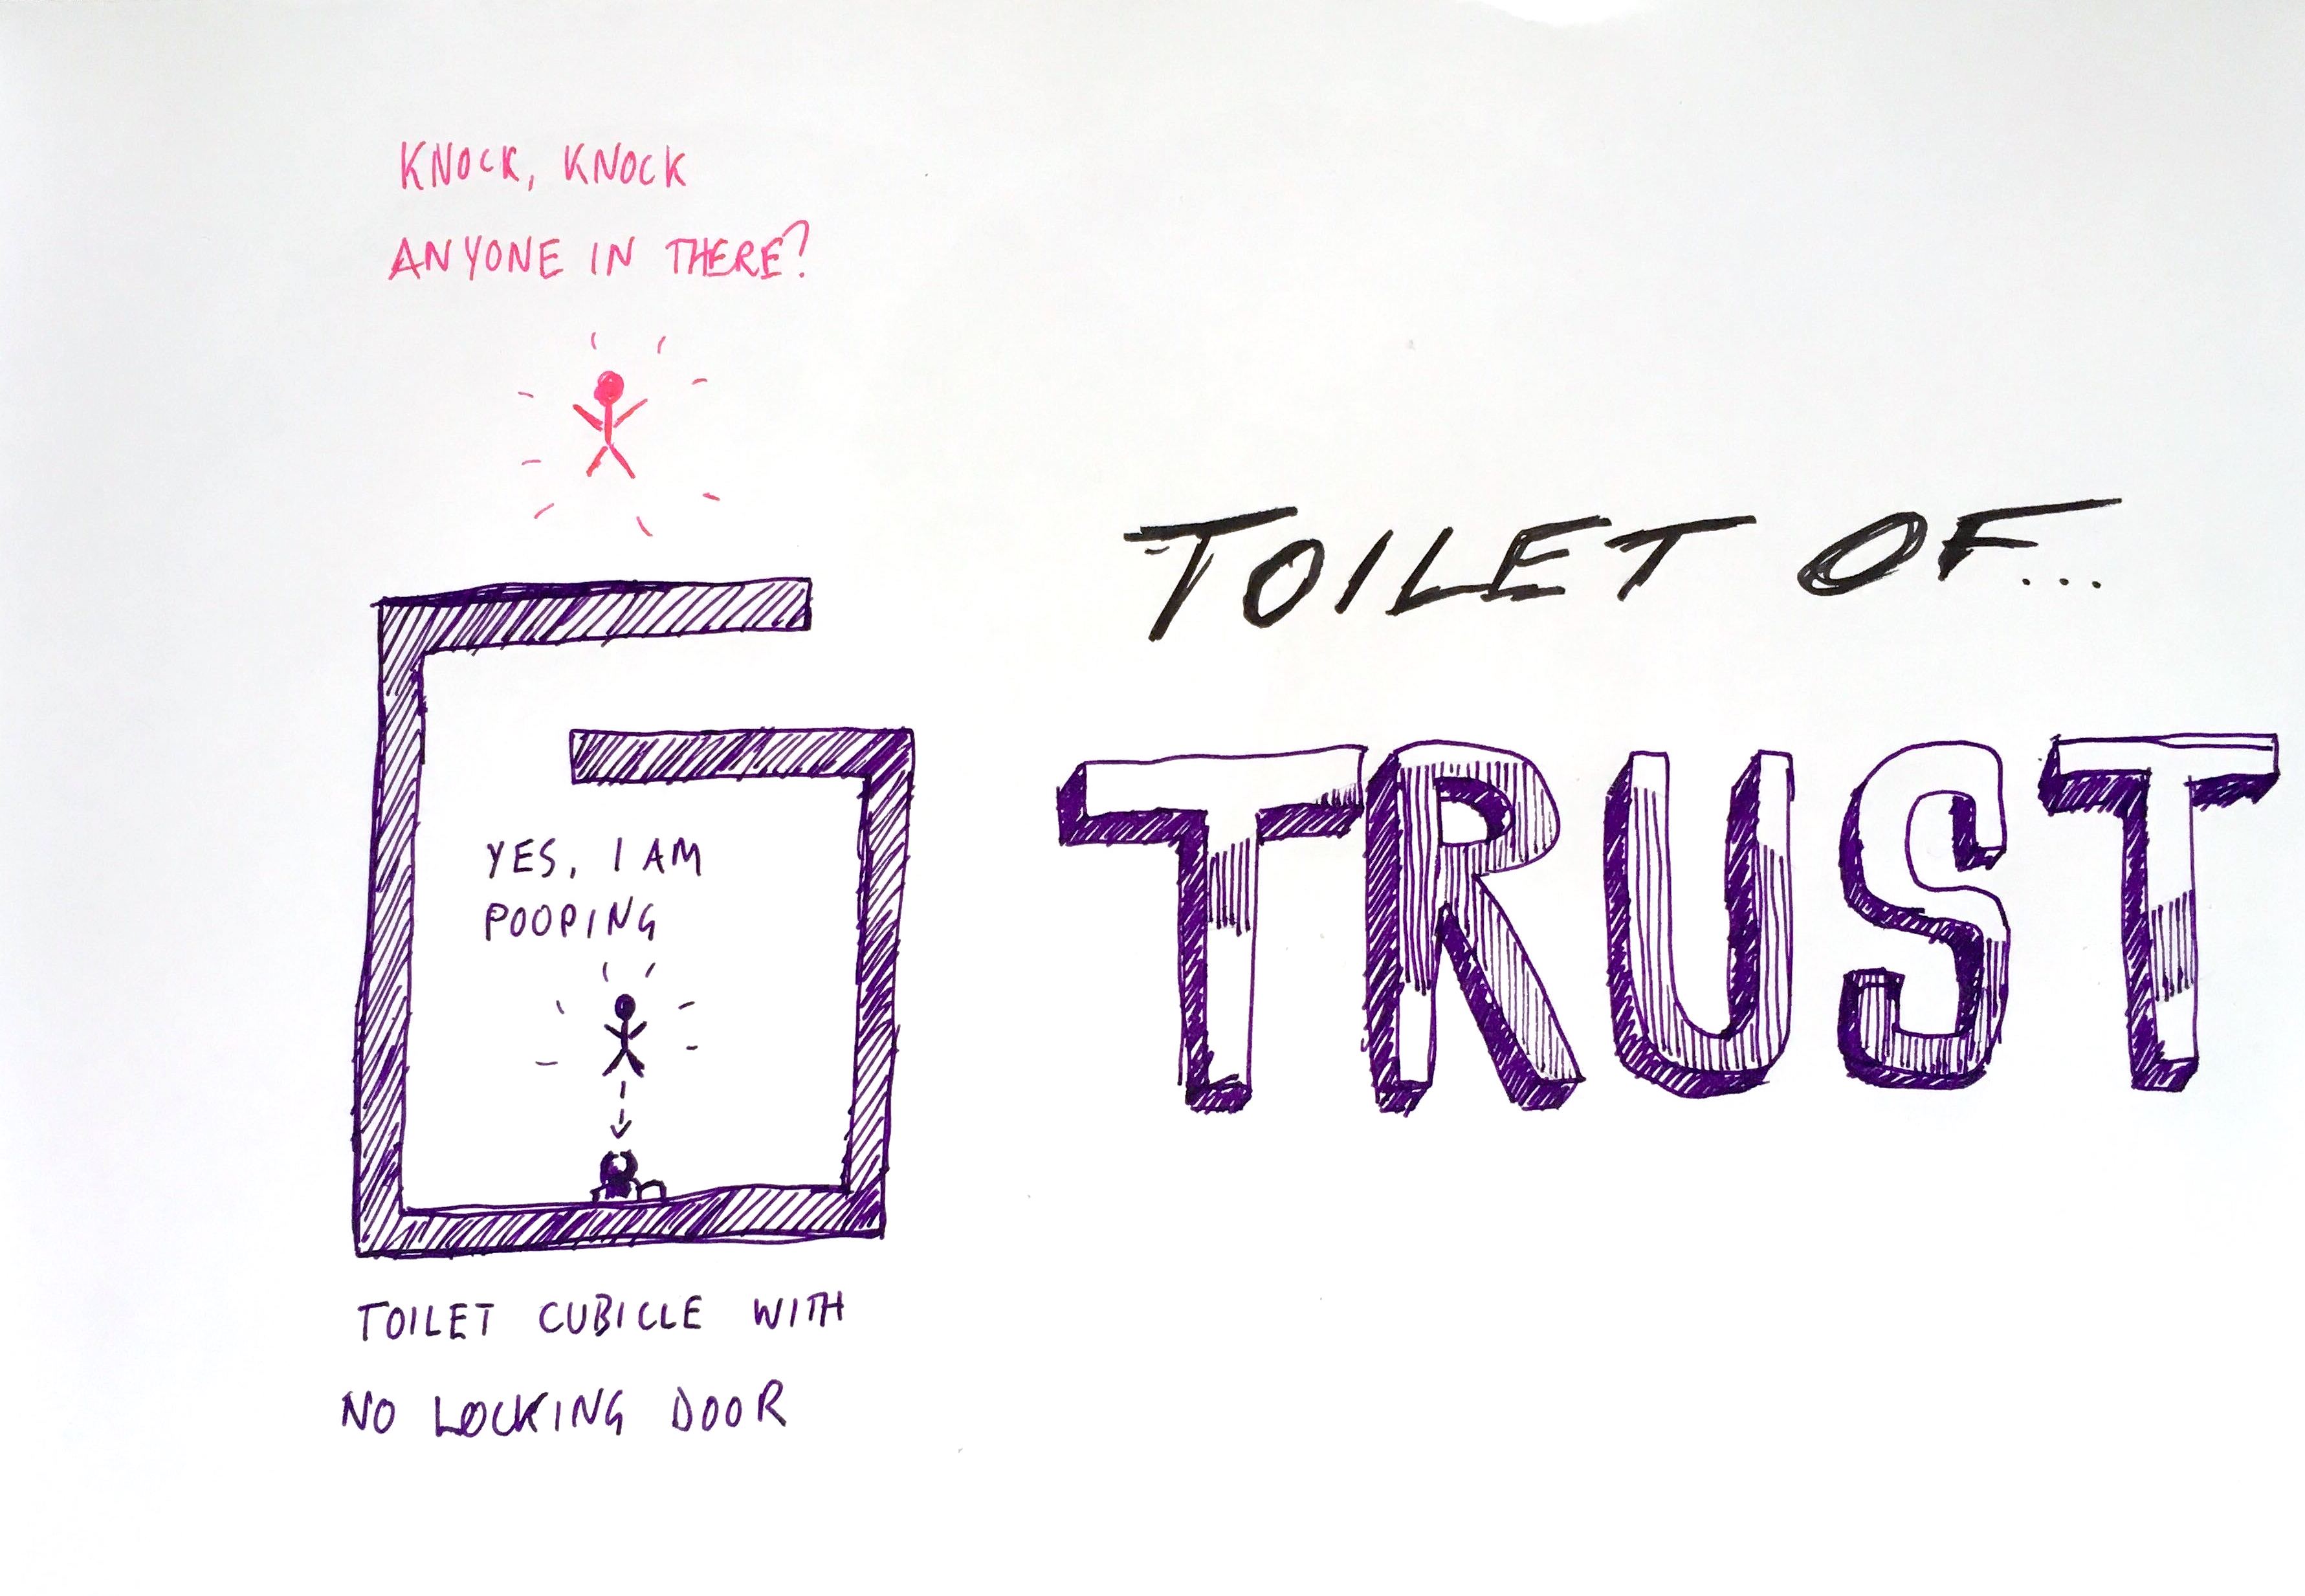 KNOCK, KNOCK
ANYONE IN THERE?
YES, I AM
POOPING
TOILET CUBICLE WITH
NO LOCKING DOOR
TOILET OF...
TRUST